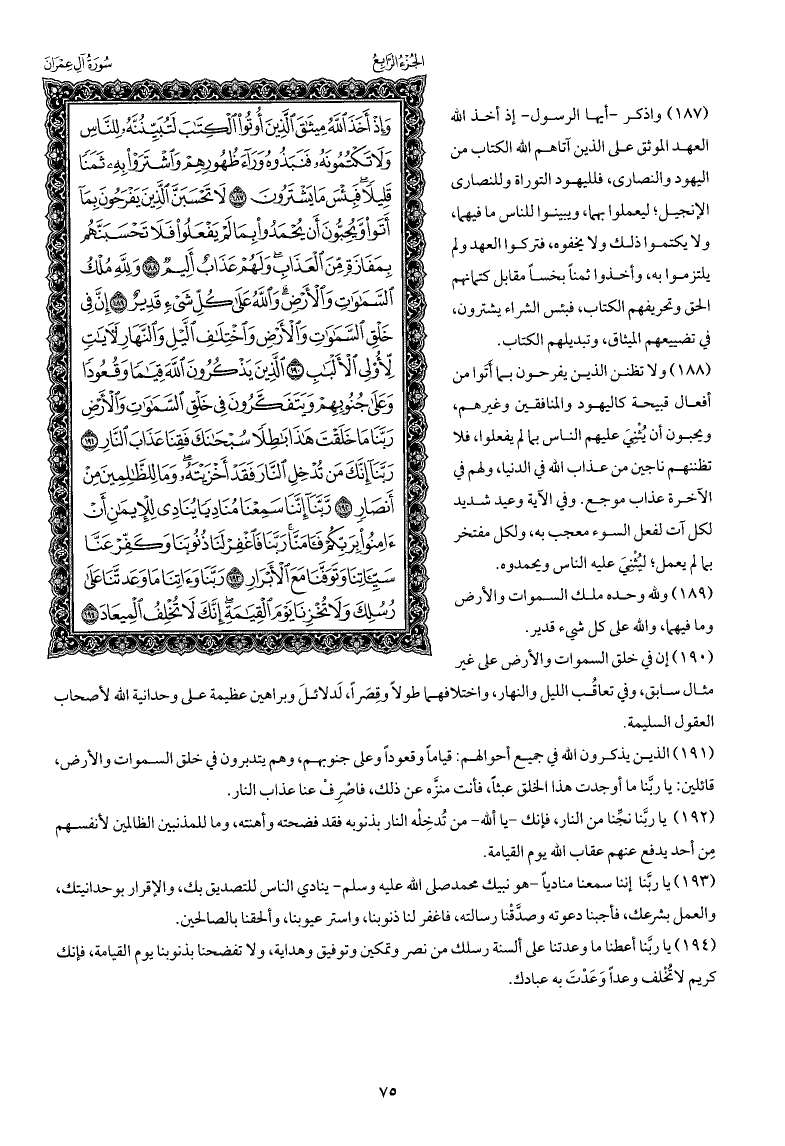 الجزء الرابع
سورة آل عمران
وَإِذۡ أَخَذَ ٱللَّهُ مِيثَٰقَ ٱلَّذِينَ أُوتُواْ ٱلۡكِتَٰبَ لَتُبَيِّنُنَّهُۥ لِلنَّاسِ
وَلَا تَكۡتُمُونَهُۥ فَنَبَذُوهُ وَرَآءَ ظُهُورِهِمۡ وَٱشۡتَرَوۡاْ بِهِۦ ثَمَنٗا
قَلِيلٗاۖ فَبِئۡسَ مَا يَشۡتَرُونَ ١٨٧ لَا تَحۡسَبَنَّ ٱلَّذِينَ يَفۡرَحُونَ بِمَآ
أَتَواْ وَّيُحِبُّونَ أَن يُحۡمَدُواْ بِمَا لَمۡ يَفۡعَلُواْ فَلَا تَحۡسَبَنَّهُم
بِمَفَازَةٖ مِّنَ ٱلۡعَذَابِۖ وَلَهُمۡ عَذَابٌ أَلِيمٞ ١٨٨ وَلِلَّهِ مُلۡكُ
ٱلسَّمَٰوَٰتِ وَٱلۡأَرۡضِۗ وَٱللَّهُ عَلَىٰ كُلِّ شَيۡءٖ قَدِيرٌ ١٨٩ إِنَّ فِي
خَلۡقِ ٱلسَّمَٰوَٰتِ وَٱلۡأَرۡضِ وَٱخۡتِلَٰفِ ٱلَّيۡلِ وَٱلنَّهَارِ لَأٓيَٰتٖ
لِّأُوْلِي ٱلۡأَلۡبَٰبِ ١٩٠ ٱلَّذِينَ يَذۡكُرُونَ ٱللَّهَ قِيَٰمٗا وَقُعُودٗا
وَعَلَىٰ جُنُوبِهِمۡ وَيَتَفَكَّرُونَ فِي خَلۡقِ ٱلسَّمَٰوَٰتِ وَٱلۡأَرۡضِ
رَبَّنَا مَا خَلَقۡتَ هَٰذَا بَٰطِلٗا سُبۡحَٰنَكَ فَقِنَا عَذَابَ ٱلنَّارِ ١٩١
رَبَّنَآ إِنَّكَ مَن تُدۡخِلِ ٱلنَّارَ فَقَدۡ أَخۡزَيۡتَهُۥۖ وَمَا لِلظَّٰلِمِينَ مِنۡ
أَنصَارٖ ١٩٢ رَّبَّنَآ إِنَّنَا سَمِعۡنَا مُنَادِيٗا يُنَادِي لِلۡإِيمَٰنِ أَنۡ
ءَامِنُواْ بِرَبِّكُمۡ فَـَٔامَنَّاۚ رَبَّنَا فَٱغۡفِرۡ لَنَا ذُنُوبَنَا وَكَفِّرۡ عَنَّا
سَيِّـَٔاتِنَا وَتَوَفَّنَا مَعَ ٱلۡأَبۡرَارِ ١٩٣ رَبَّنَا وَءَاتِنَا مَا وَعَدتَّنَا عَلَىٰ
رُسُلِكَ وَلَا تُخۡزِنَا يَوۡمَ ٱلۡقِيَٰمَةِۖ إِنَّكَ لَا تُخۡلِفُ ٱلۡمِيعَادَ ١٩٤
(١٨٧) واذكر -أيها الرسول- إذ أخذ الله
العهد الموثق على الذين آتاهم الله الكتاب من
اليهود والنصارى، فلليهود التوراة وللنصارى
الإنجيل؛ ليعملوا بهما، ويبينوا للناس ما فيهما،
ولا يكتموا ذلك ولا يخفوه، فتركوا العهد ولم
يلتزموا به، وأخذوا ثمناً بخساً مقابل كتمانهم
الحق وتحريفهم الكتاب، فبئس الشراء يشترون،
في تضييعهم الميثاق، وتبديلهم الكتاب.
(١٨٨) ولا تظنن الذين يفرحون بما أَتَوا من
أفعال قبيحة كاليهود والمنافقين وغيرهم،
ويحبون أن يُثْنِيَ عليهم الناس بما لم يفعلوا، فلا
تظننهم ناجين من عذاب الله في الدنيا، ولهم في
الآخرة عذاب موجع. وفي الآية وعيد شديد
لكل آت لفعل السوء معجب به، ولكل مفتخر
بما لم يعمل؛ ليُثْنِيَ عليه الناس ويحمدوه.
(١٨٩) ولله وحده ملك السموات والأرض
وما فيهما، والله على كل شيء قدير.
(١٩٠) إن في خلق السموات والأرض على غير
مثال سابق، وفي تعاقُب الليل والنهار، واختلافهما طولاً وقِصَراً، لَدلائلَ وبراهين عظيمة على وحدانية الله لأصحاب
العقول السليمة.
(١٩١) الذين يذكرون الله في جميع أحوالهم: قياماً وقعوداً وعلى جنوبهم، وهم يتدبرون في خلق السموات والأرض،
قائلين: يا ربَّنا ما أوجدت هذا الخلق عبثاً، فأنت منزَّه عن ذلك، فاصْرِفْ عنا عذاب النار.
(١٩٢) يا ربَّنا نجِّنا من النار، فإنك -يا ألله- من تُدخِلْه النار بذنوبه فقد فضحته وأهنته، وما للمذنبين الظالمين لأنفسهم
مِن أحد يدفع عنهم عقاب الله يوم القيامة.
(١٩٣) يا ربَّنا إننا سمعنا منادياً -هو نبيك محمد صلى الله عليه وسلم- ينادي الناس للتصديق بك، والإقرار بوحدانيتك،
والعمل بشرعك، فأجبنا دعوته وصدَّقْنا رسالته، فاغفر لنا ذنوبنا، واستر عيوبنا، وألحقنا بالصالحين.
(١٩٤) يا ربَّنا أعطنا ما وعدتنا على ألسنة رسلك من نصر وتمكين وتوفيق وهداية، ولا تفضحنا بذنوبنا يوم القيامة، فإنك
كريم لا تُخْلف وعداً وَعَدْتَ به عبادك.
٧٥